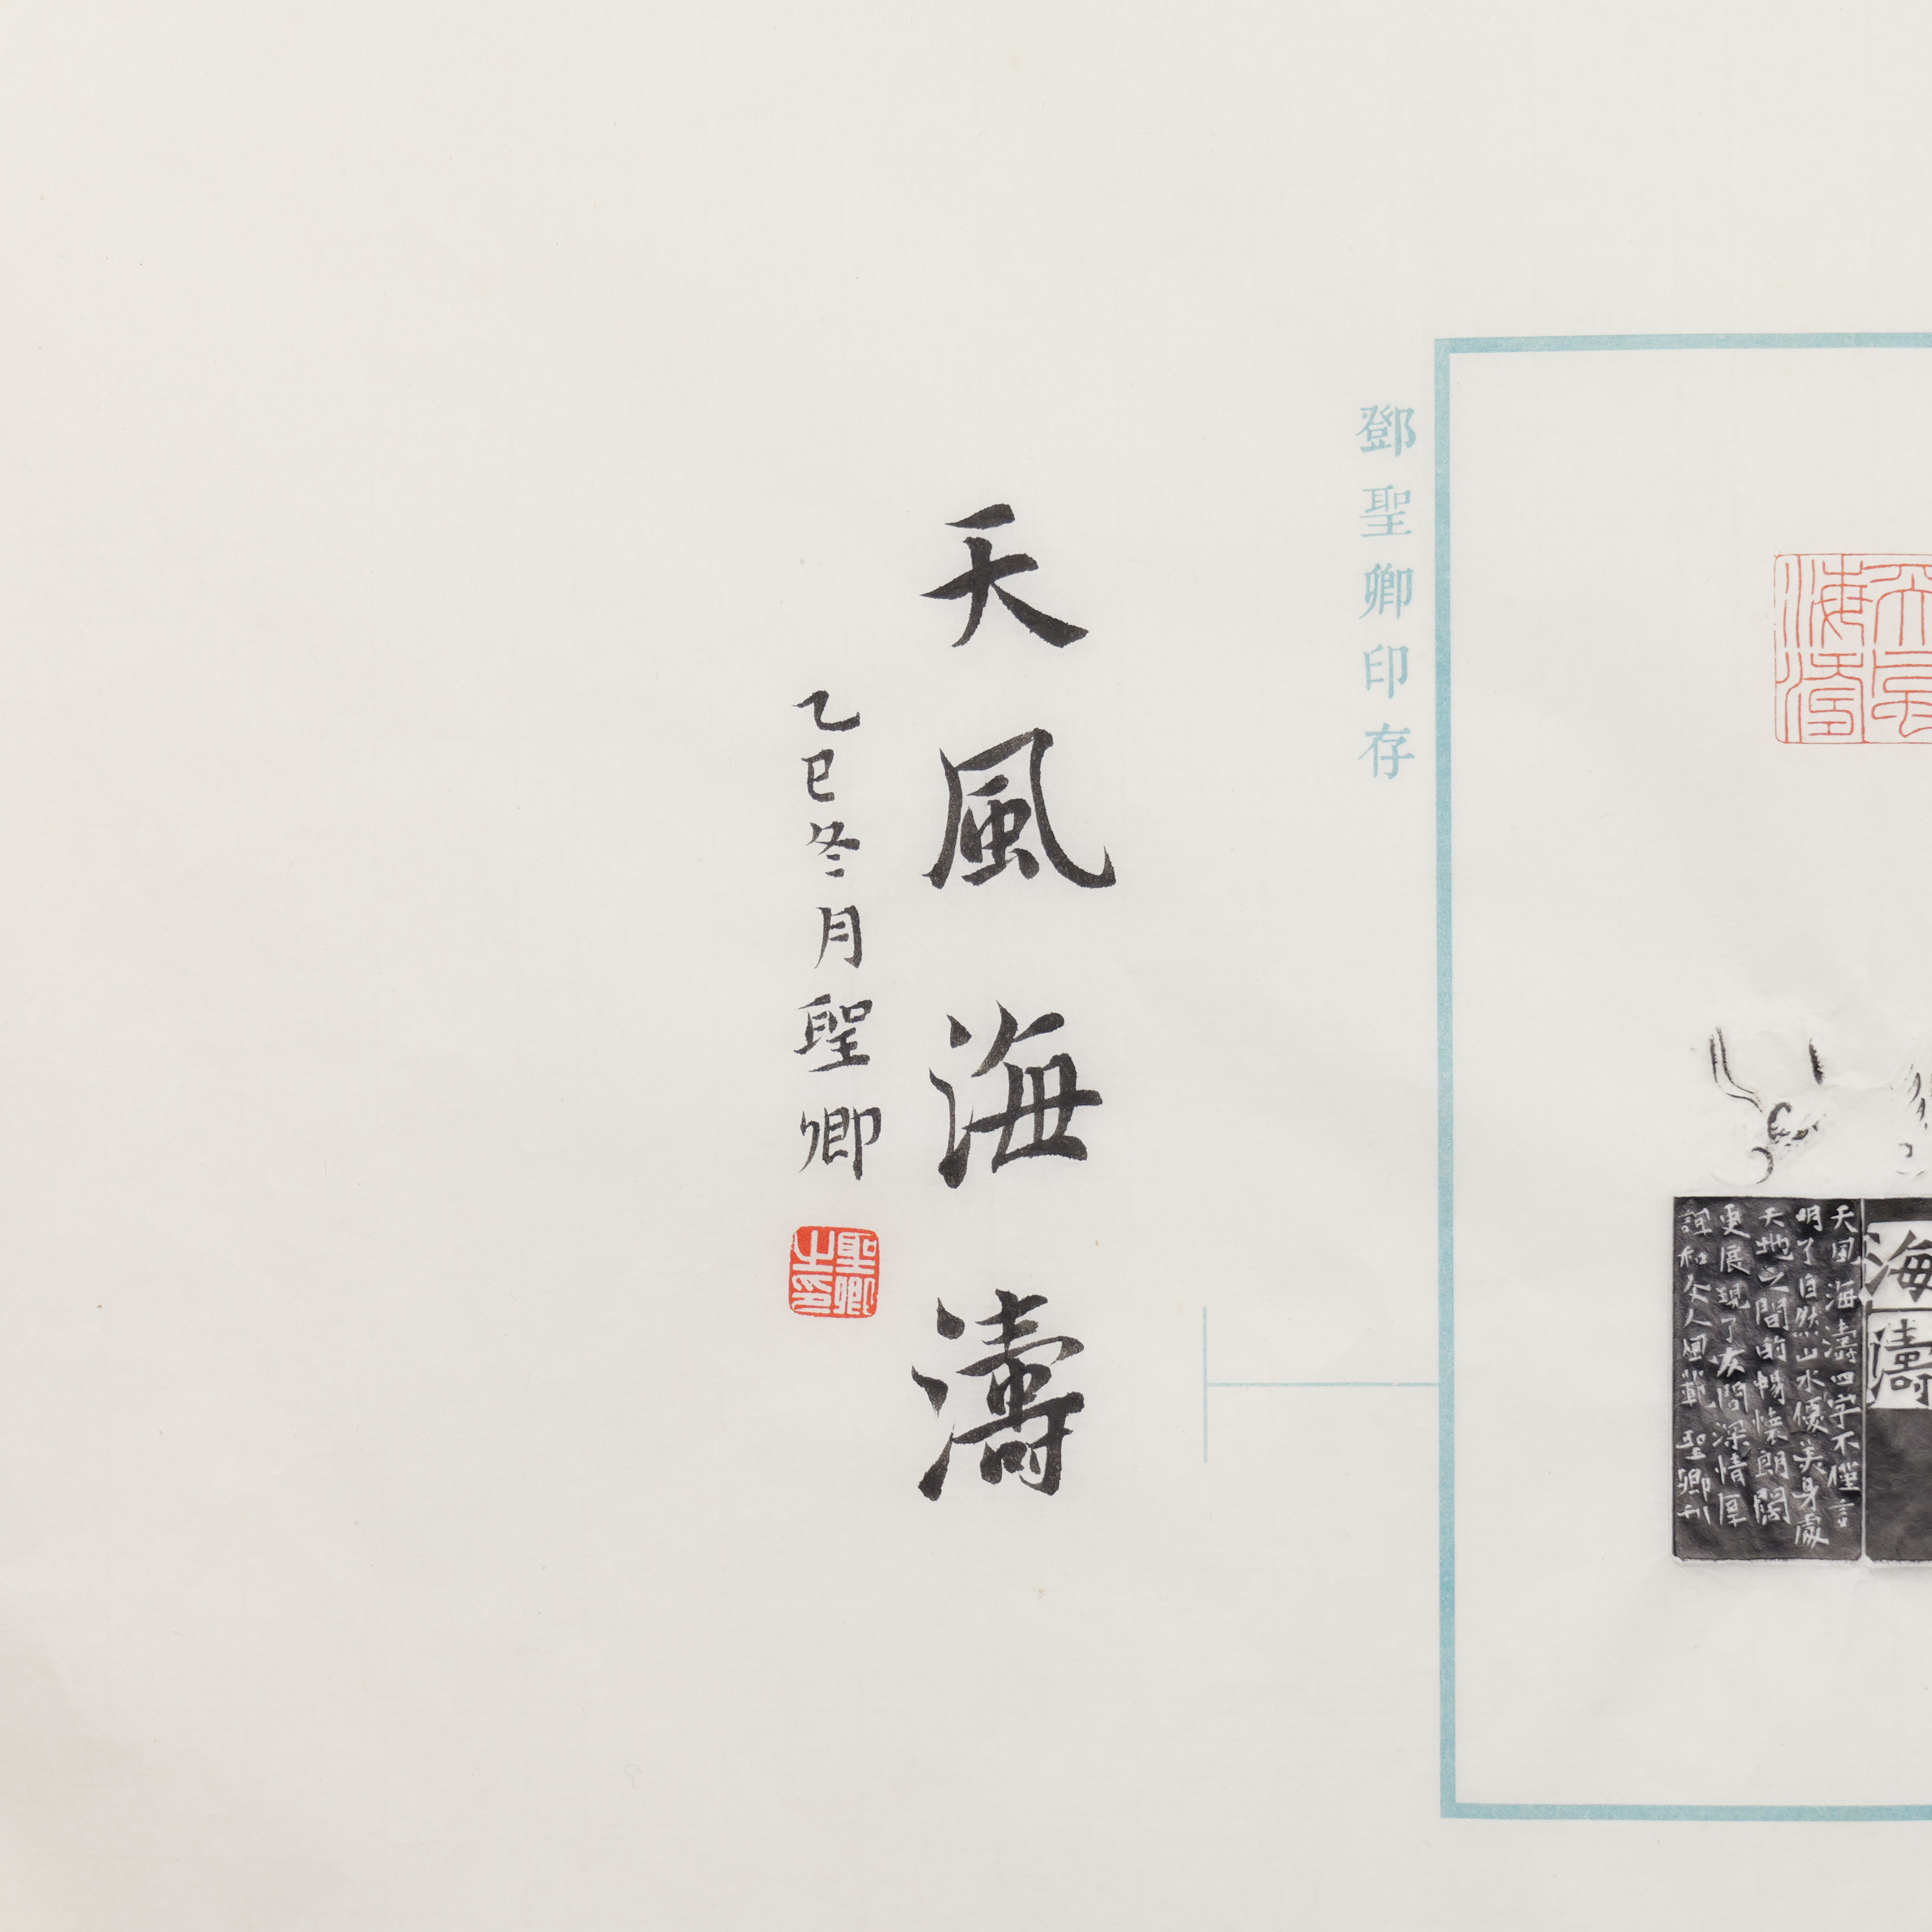 鄧聖卿印存
天風海濤
乙巳冬月聖卿
聖卿之印
天風海濤
海濤
天風海濤四字不僅言
明了自然山水優美身處
天地之間的暢懷朗闊
更展現了友間深情厚
誼和今人風範 聖卿刊